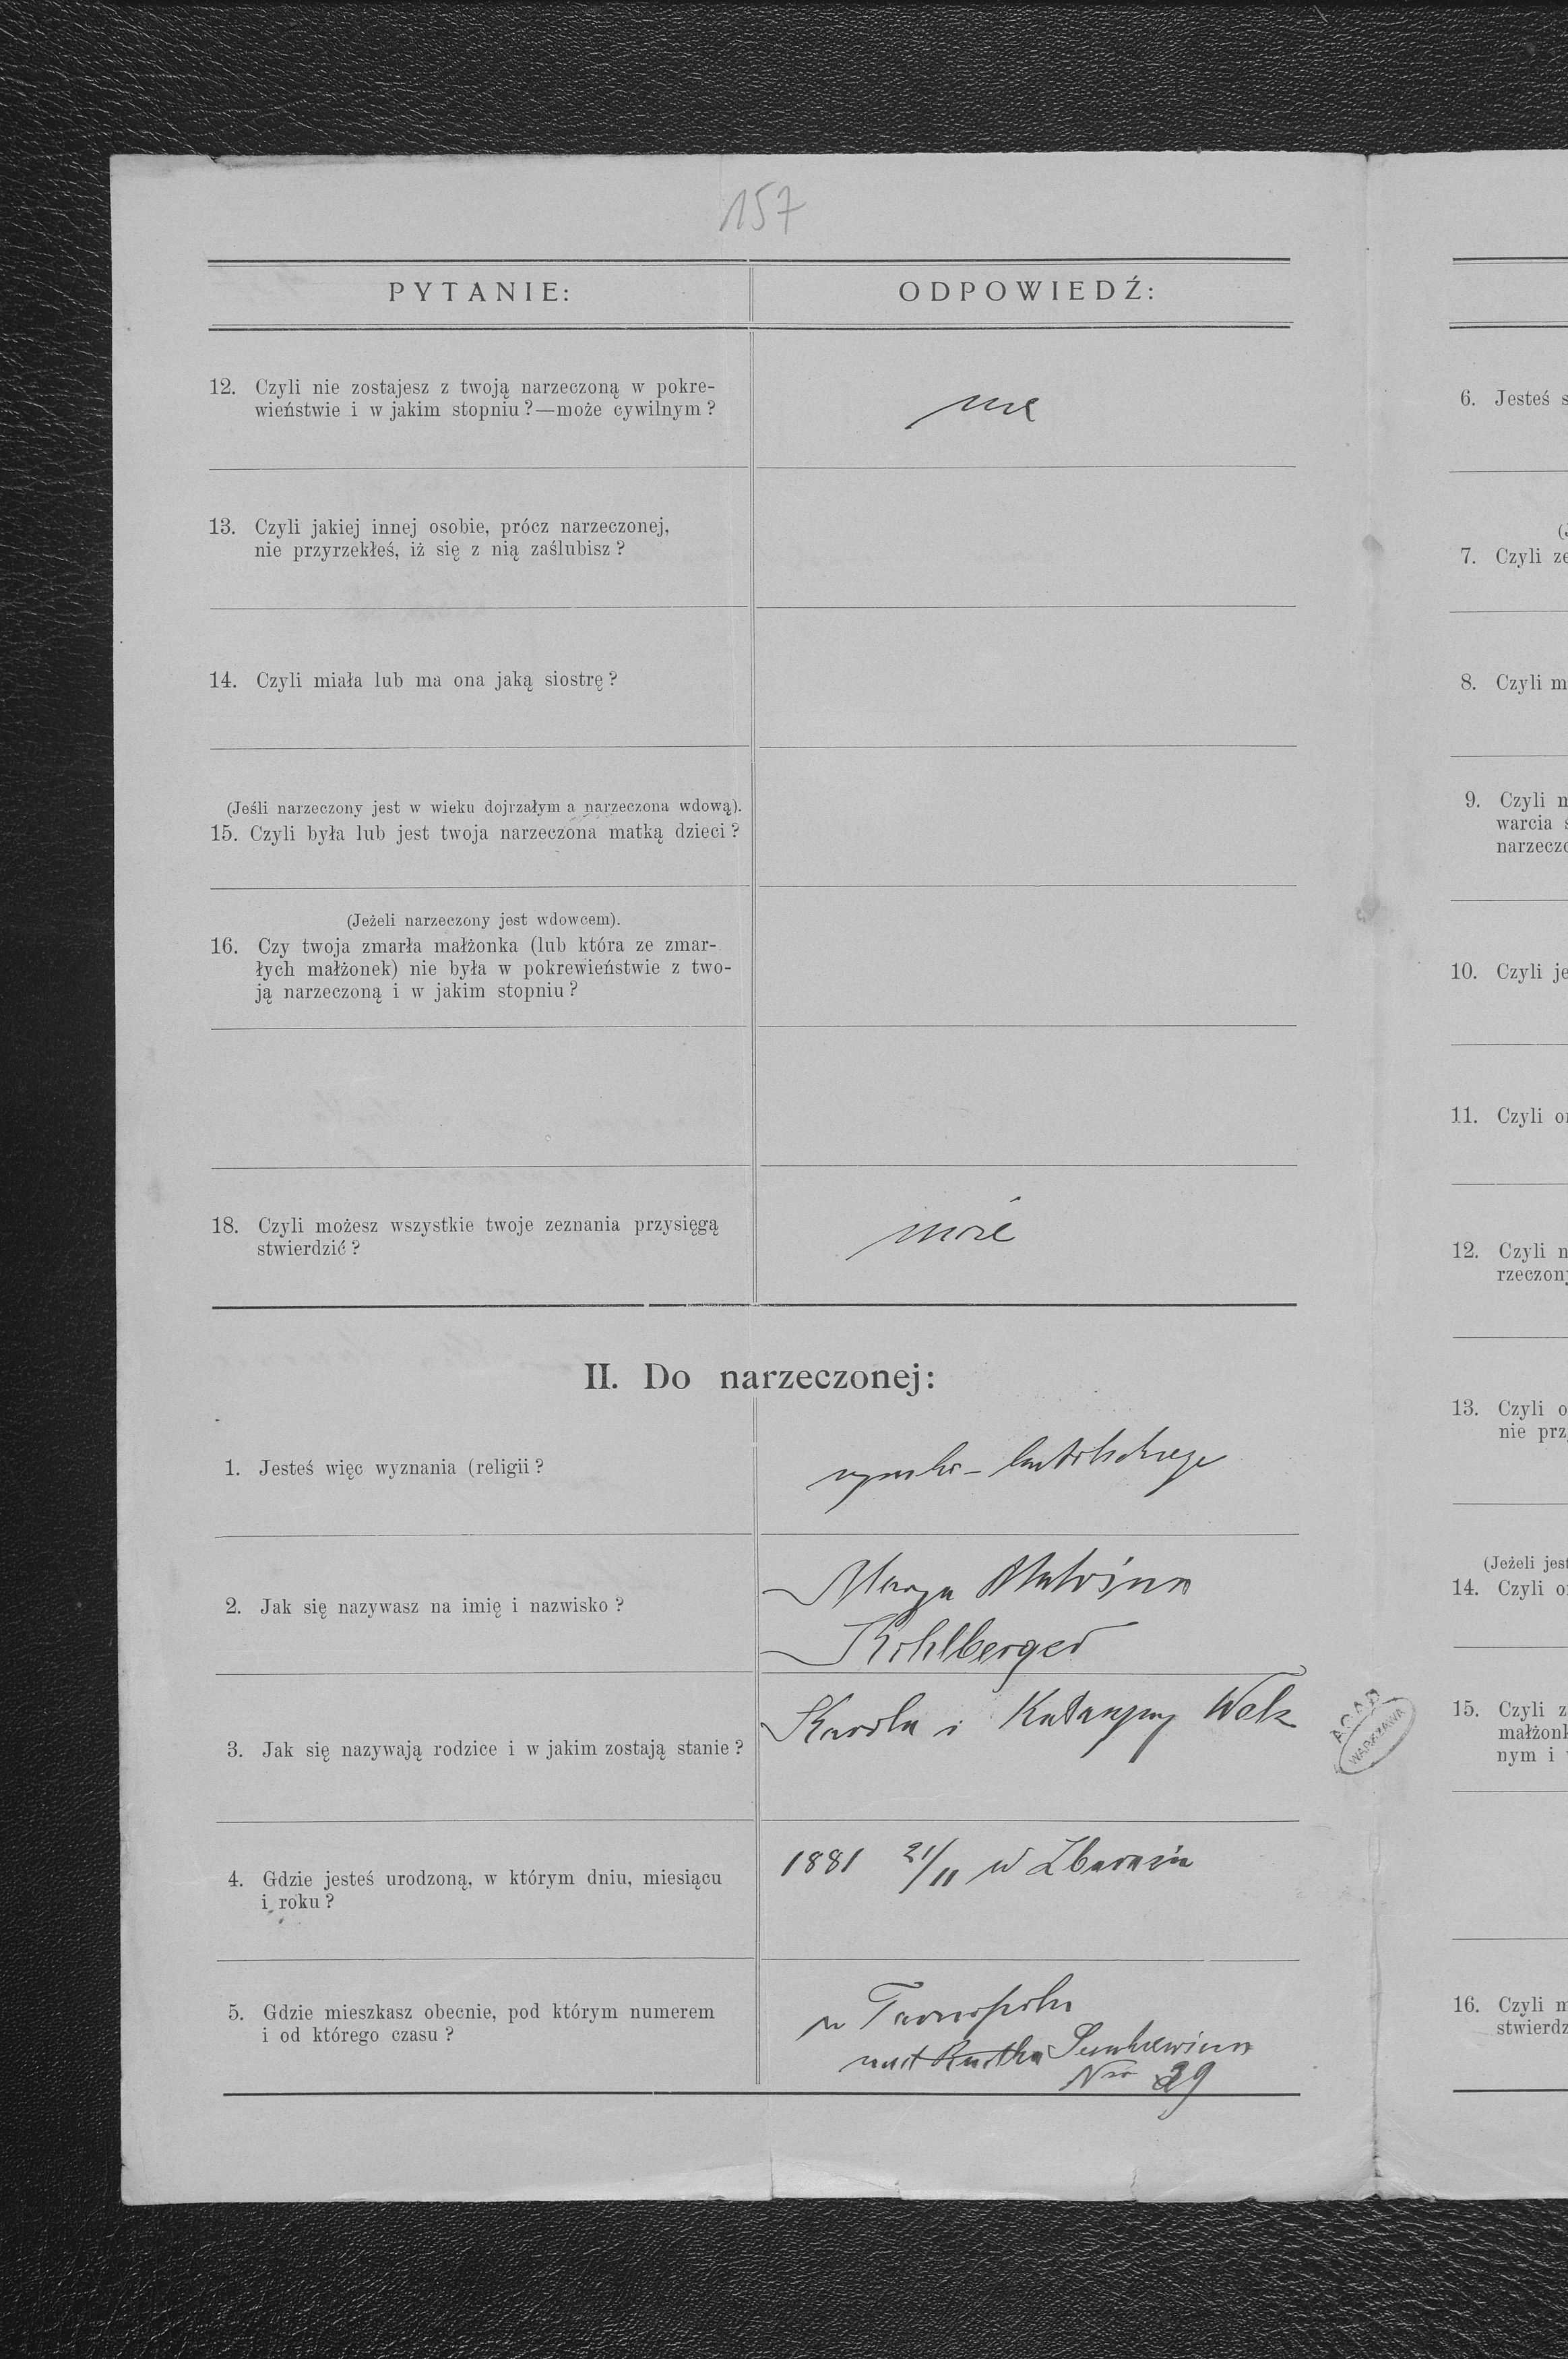 157
PYTANIE:
ODPOWIEDŹ:
12. Czyli nie zostajesz z twoją narzeczoną w pokre-
wieństwie i w jakim stopniu?—może cywilnym?
nie
13. Czyli jakiej innej osobie, prócz narzeczonej,
nie przyrzekłeś, iż się z nią zaślubisz?
14. Czyli miała lub ma ona jaką siostrę?
(Jeśli narzeczony jest w wieku dojrzałym a narzeczona wdową).
15. Czyli była lub jest twoja narzeczona matką dzieci?
(Jeżeli narzeczony jest wdowcem).
16. Czy twoja zmarła małżonka (lub która ze zmar-
łych małżonek) nie była w pokrewieństwie z two-
ją narzeczoną i w jakim stopniu?
18. Czyli możesz wszystkie twoje zeznania przysięgą
stwierdzić?
może
II. Do narzeczonej:
1. Jesteś więc wyznania (religii?
rzymsko-katolickiego
2. Jak się nazywasz na imię i nazwisko?
Marya Malwina
Kohlberger
3. Jak się nazywają rodzice i w jakim zostają stanie?
Karola i Katarzyny Wolk
4. Gdzie jesteś urodzoną, w którym dniu, miesiącu
i roku?
1881 21/11 w Zbarażu
5. Gdzie mieszkasz obecnie, pod którym numerem
i od którego czasu?
w Tarnopolu
Nro 39
A.G.A.D
WARSZAWA
6. Jesteś s
(J
7. Czyli ze
8. Czyli m
9. Czyli m
warcia ś
narzeczo
10. Czyli je
11. Czyli on
12. Czyli n
rzeczony
13. Czyli o
nie prz
(Jeżeli jest
14. Czyli o
15. Czyli z
małżonk
nym i
16. Czyli m
stwierdz